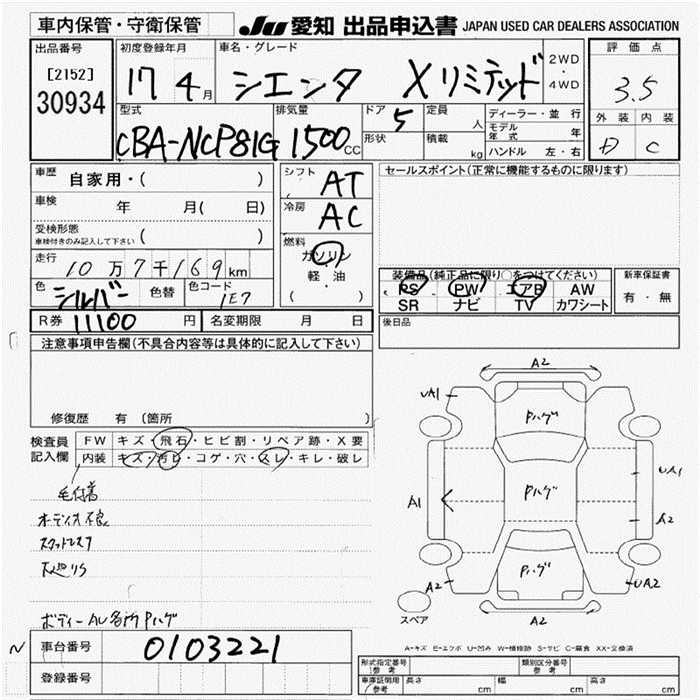 車内保管・守衛保管
JU 愛知 出品申込書 JAPAN USED CAR DEALERS ASSOCIATION
出品番号
[2152]
30934
初度登録年月
17 4月
車名・グレード
シエンタ Xリミテッド
2WD
・
4WD
評価点
3.5
外装 内装
D C
型式
CBA-NCP81G
排気量
1500cc
ドア
5
形状
定員
人
積載
kg
ディーラー・並行
モデル年式 年
ハンドル 左・右
車歴
自家用・( )
車検
年 月( 日)
受検形態
車検付きのみ記入して下さい ( )
走行
10万7千169km
色
シルバー
色替
色コード
1E7
シフト
AT
冷房
AC
燃料
ガソリン
軽・油
( )
セールスポイント(正常に機能するものに限ります)
装備品(純正品に限り○をつけてください)
PS PW エアB AW
SR ナビ TV カワシート
新車保証書
有・無
後日品
R券 11100 円
名変期限 月 日
注意事項申告欄(不具合内容等は具体的に記入して下さい)
修復歴 有 (箇所
検査員
記入欄
FW キズ・飛石・ヒビ割・リペア跡・X要
内装 キズ・汚レ・コゲ・穴・スレ・キレ・破レ
毛付着
オーディオ不良
スタッドレス7
ボディー AU各所 Pハゲ
A2
UA1
Pハゲ
UA1
A1
Pハゲ
A2
Pハゲ
A2
UA2
A2
スペア
N
車台番号
0103221
登録番号
A-キズ E-エクボ U-凹み W-補修跡 S-サビ C-腐食 XX-交換済
形式指定番号
参考
類別区分番号
参考
車庫証明用
参考
長さ cm
幅 cm
高さ cm